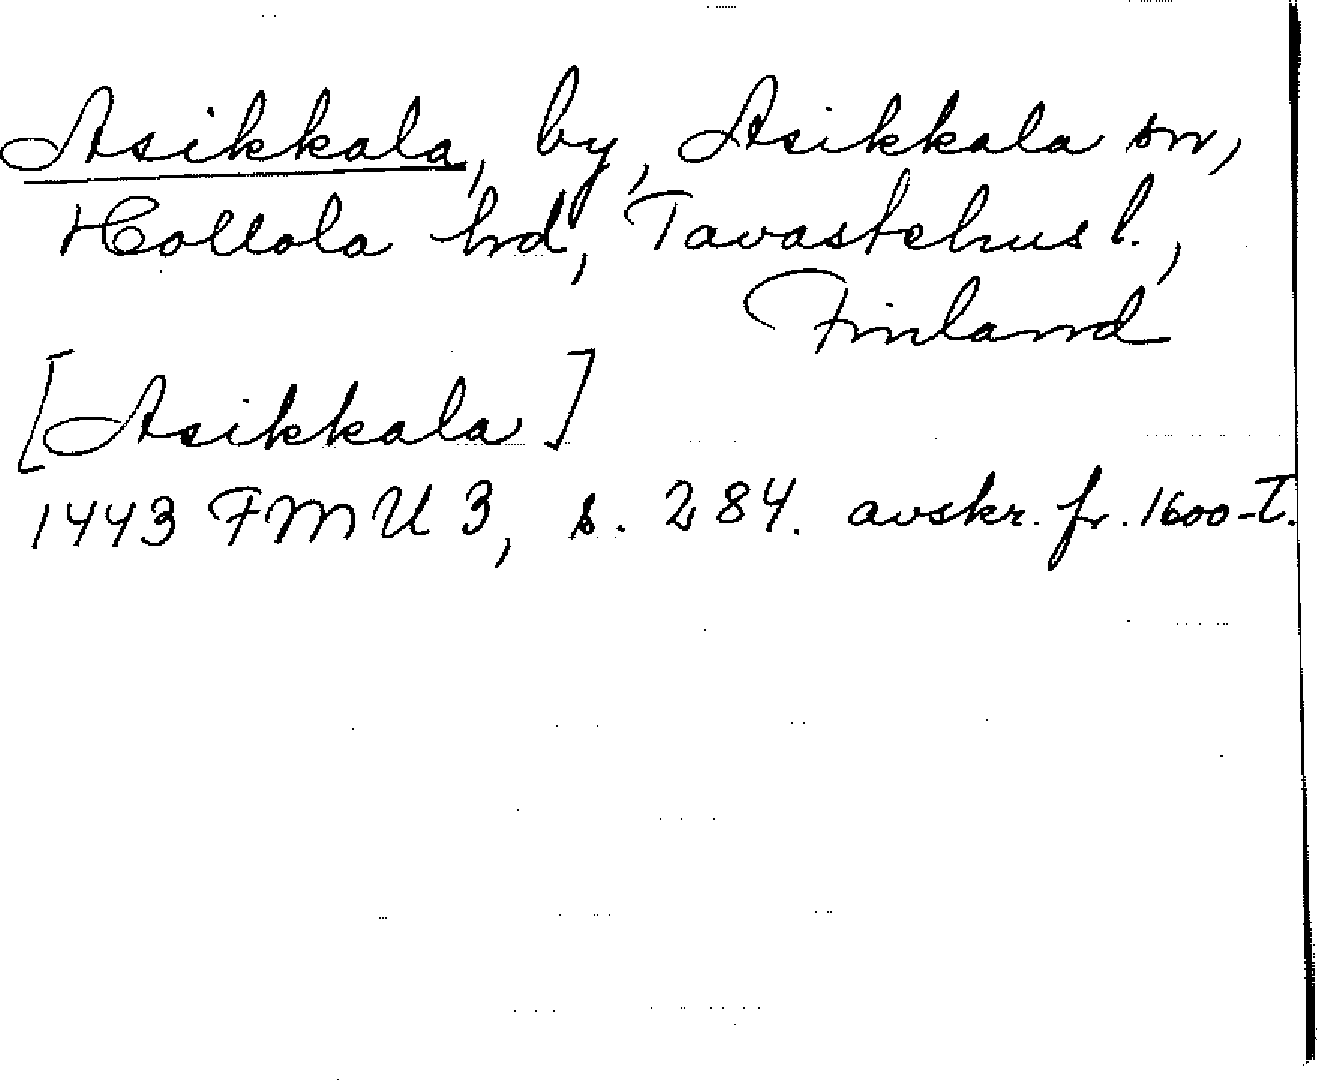 Asikkala, by, Asikkala sn,
Hollola hd, Tavastehus l.,
Finland
[Asikkala]
1443 FMU 3, s. 284. avskr. fr. 1600-t.